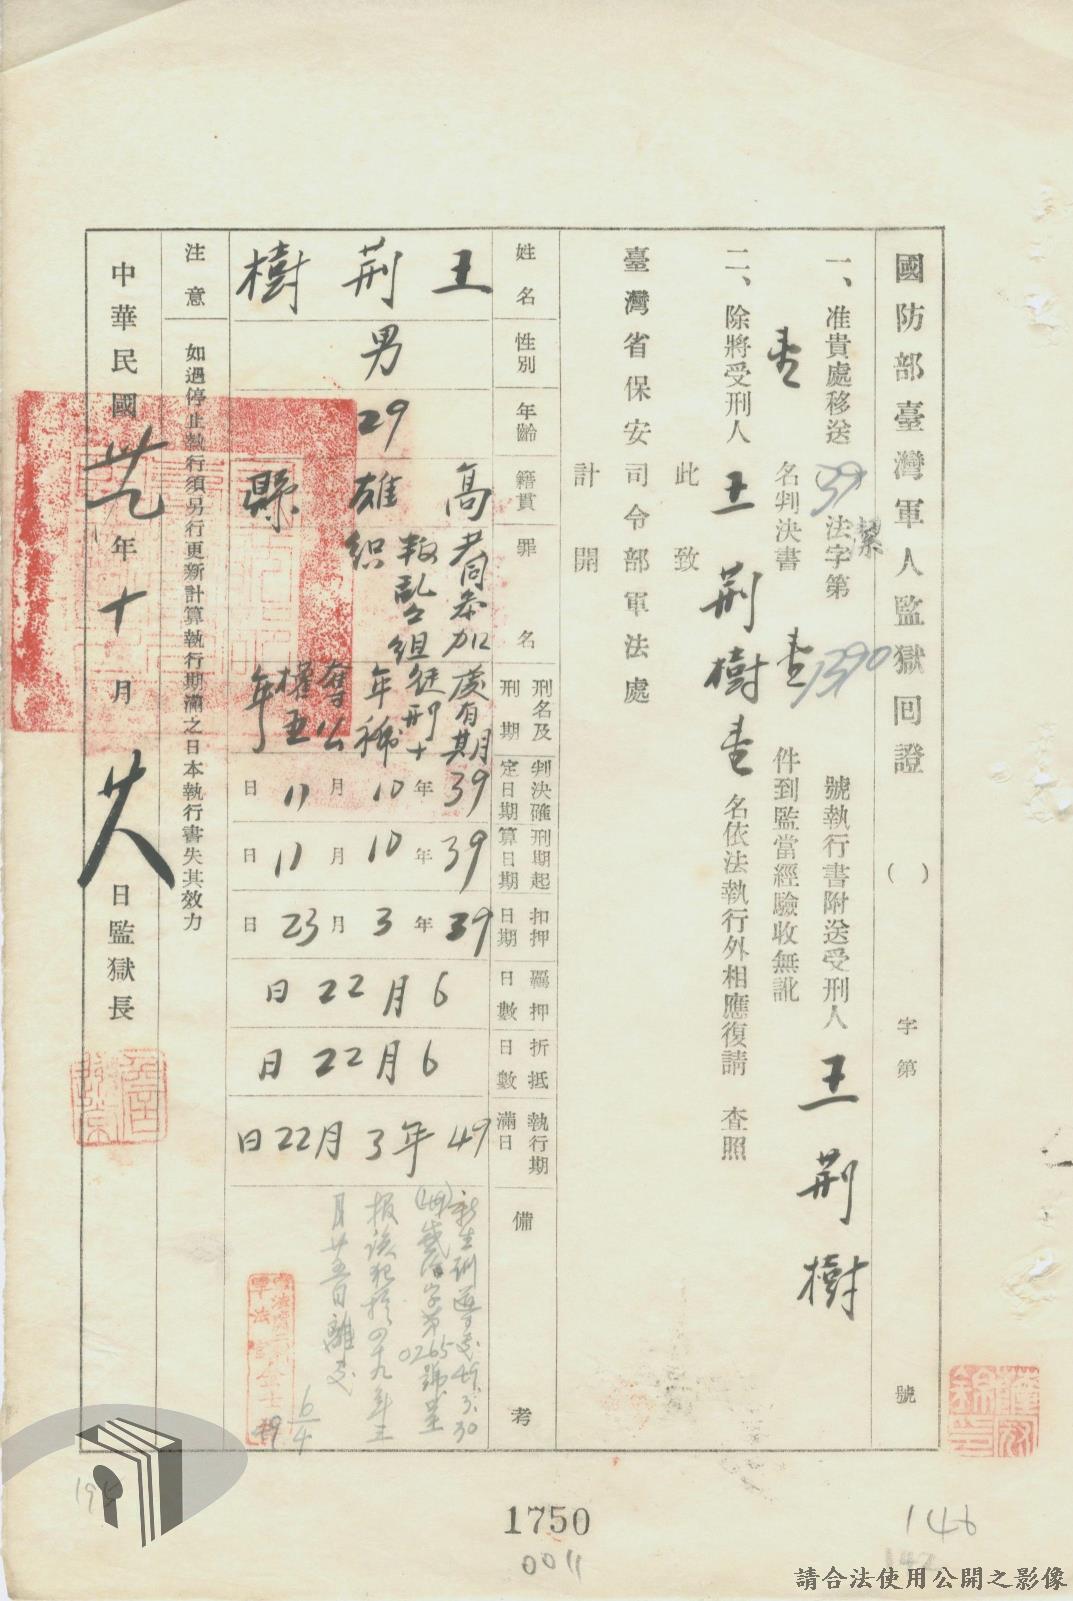 國防部臺灣軍人監獄回證 ( ) 字第 號
一、准貴處移送(39)潔法字第1390號執行書附送受刑人王荆樹
壹名判決書壹件到監當經驗收無訛
二、除將受刑人王荆樹壹名依法執行外相應復請 查照
此致
臺灣省保安司令部軍法處
計開
姓名 王荆樹
性別 男
年齡 29
籍貫 高雄縣
罪名 共同參加叛乱之組織
刑名及刑期 處有期徒刑十年褫奪公權五年
判決確定日期 39年10月11日
刑期起算日期 39年10月11日
扣押日期 39年3月23日
羈押日數 6月22日
折抵日數 6月22日
執行期滿日 49年3月22日
備考 新生訓導處49.3.30
(49)字第0265號
報該犯於四十九年三
月廿五日離處
6/4
注意 如過停止執行須另行更新計算執行期滿之日本執行書失其效力
中華民國卅九年十月廿八日監獄長
1750
0011
146
147
195
請合法使用公開之影像